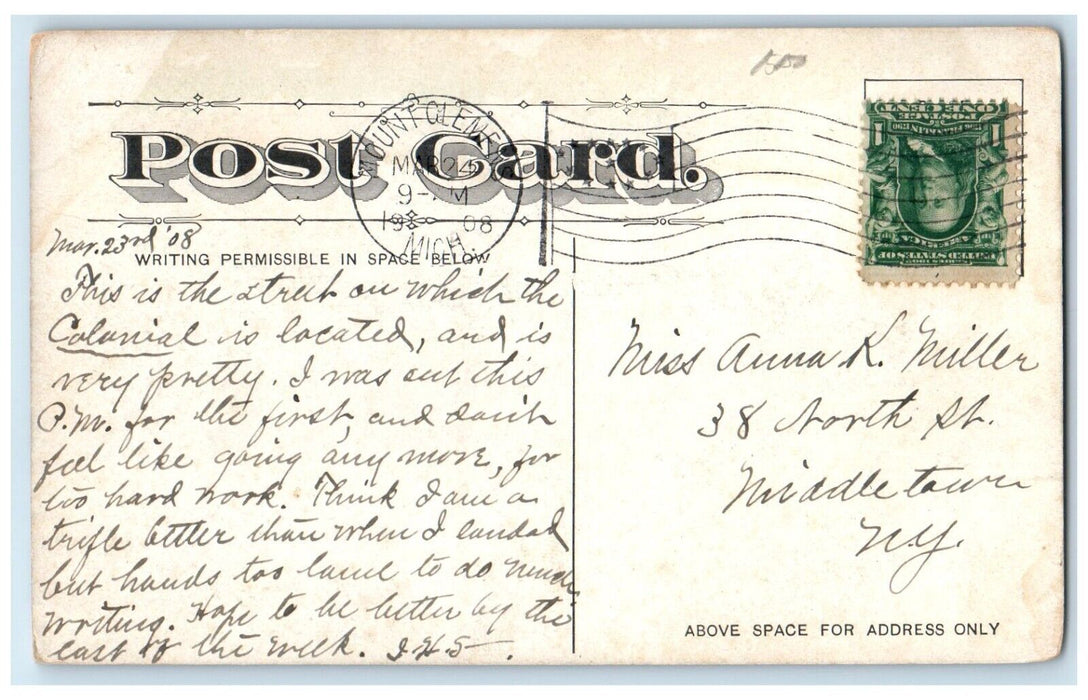 Post Card.
MOUNT CLEMENS
MAR 24
9- M
1908
MICH.
ONE CENT
1
1
POSTAGE
FRANKLIN
UNITED STATES OF
AMERICA
Mar. 23rd '08
WRITING PERMISSIBLE IN SPACE BELOW
This is the street on which the
Colonial is located, and is
very pretty. I was out this
P.M. for the first, and don't
feel like going any more, for
too hard work. Think I am a
trifle better than when I landed
but hands too lame to do much
writing. Hope to be better by the
last of the week. I H S .
Miss Anna K. Miller
38 North St.
Middletown
N.Y.
ABOVE SPACE FOR ADDRESS ONLY